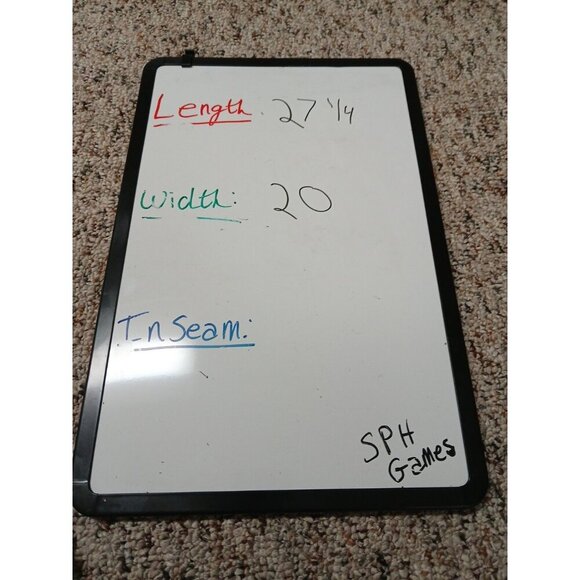 Length. 27 1/4
Width: 20
Inseam:
SPH
Games